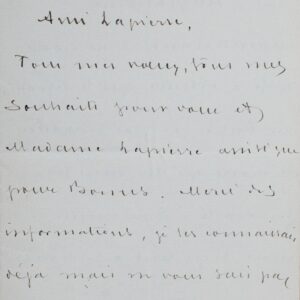 Ami Lapierre,
Tous mes vœux, tous mes
souhaits pour vous et
Madame Lapierre ainsi que
pour Bonus. Merci des
informations, je les connaissais
déjà mais ne vous sais pas